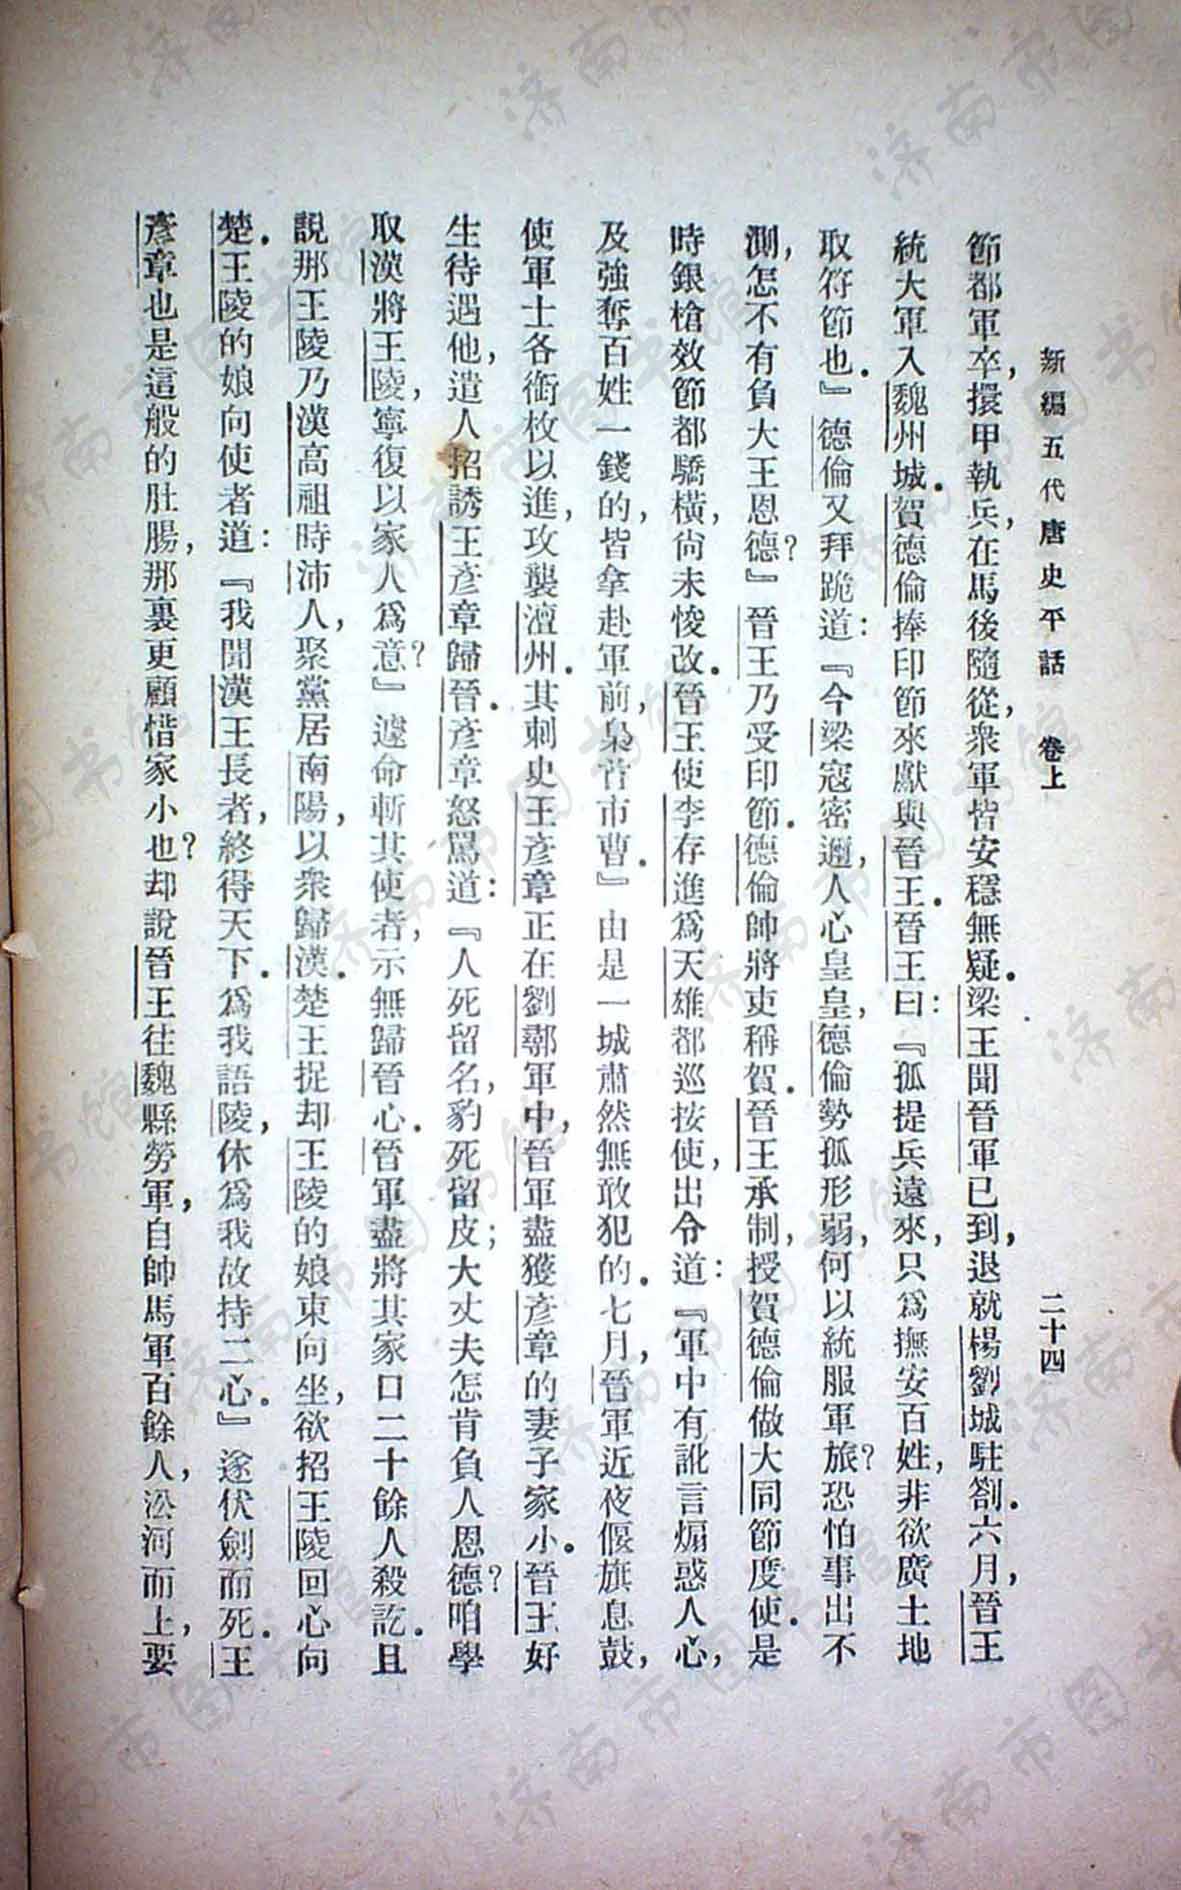 新編五代唐史平話　卷上　二十四
節都軍卒，擐甲執兵，在馬後隨從，衆軍皆安穩無疑。梁王聞晉軍已到，退就楊劉城駐劄。六月，晉王
統大軍入魏州城。賀德倫捧印節來獻與晉王。晉王曰：『孤提兵遠來，只爲撫安百姓，非欲廣土地
取符節也。』德倫又拜跪道：『今梁寇密邇，人心皇皇，德倫勢孤形弱，何以統服軍旅？恐怕事出不
測，怎不有負大王恩德？』晉王乃受印節。德倫帥將吏稱賀。晉王承制，授賀德倫做大同節度使。是
時銀槍效節都驕橫，尙未悛改。晉王使李存進爲天雄都巡按使，出令道：『軍中有訛言煽惑人心，
及強奪百姓一錢的，皆拿赴軍前，梟首市曹。』由是一城肅然無敢犯的。七月，晉軍近夜偃旗息鼓，
使軍士各銜枚以進，攻襲澶州。其刺史王彥章正在劉鄩軍中，晉軍盡獲彥章的妻子家小。晉王好
生待遇他，遣人招誘王彥章歸晉。彥章怒罵道：『人死留名，豹死留皮；大丈夫怎肯負人恩德？咱學
取漢將王陵，寧復以家人爲意？』遽命斬其使者，示無歸晉心。晉軍盡將其家口二十餘人殺訖。且
說那王陵乃漢高祖時沛人，聚黨居南陽，以衆歸漢。楚王捉却王陵的娘東向坐，欲招王陵回心向
楚。王陵的娘向使者道：『我聞漢王長者，終得天下。爲我語陵，休爲我故持二心。』遂伏劍而死。王
彥章也是這般的肚腸，那裏更顧惜家小也？却說晉王往魏縣勞軍，自帥馬軍百餘人，㳂河而上，要